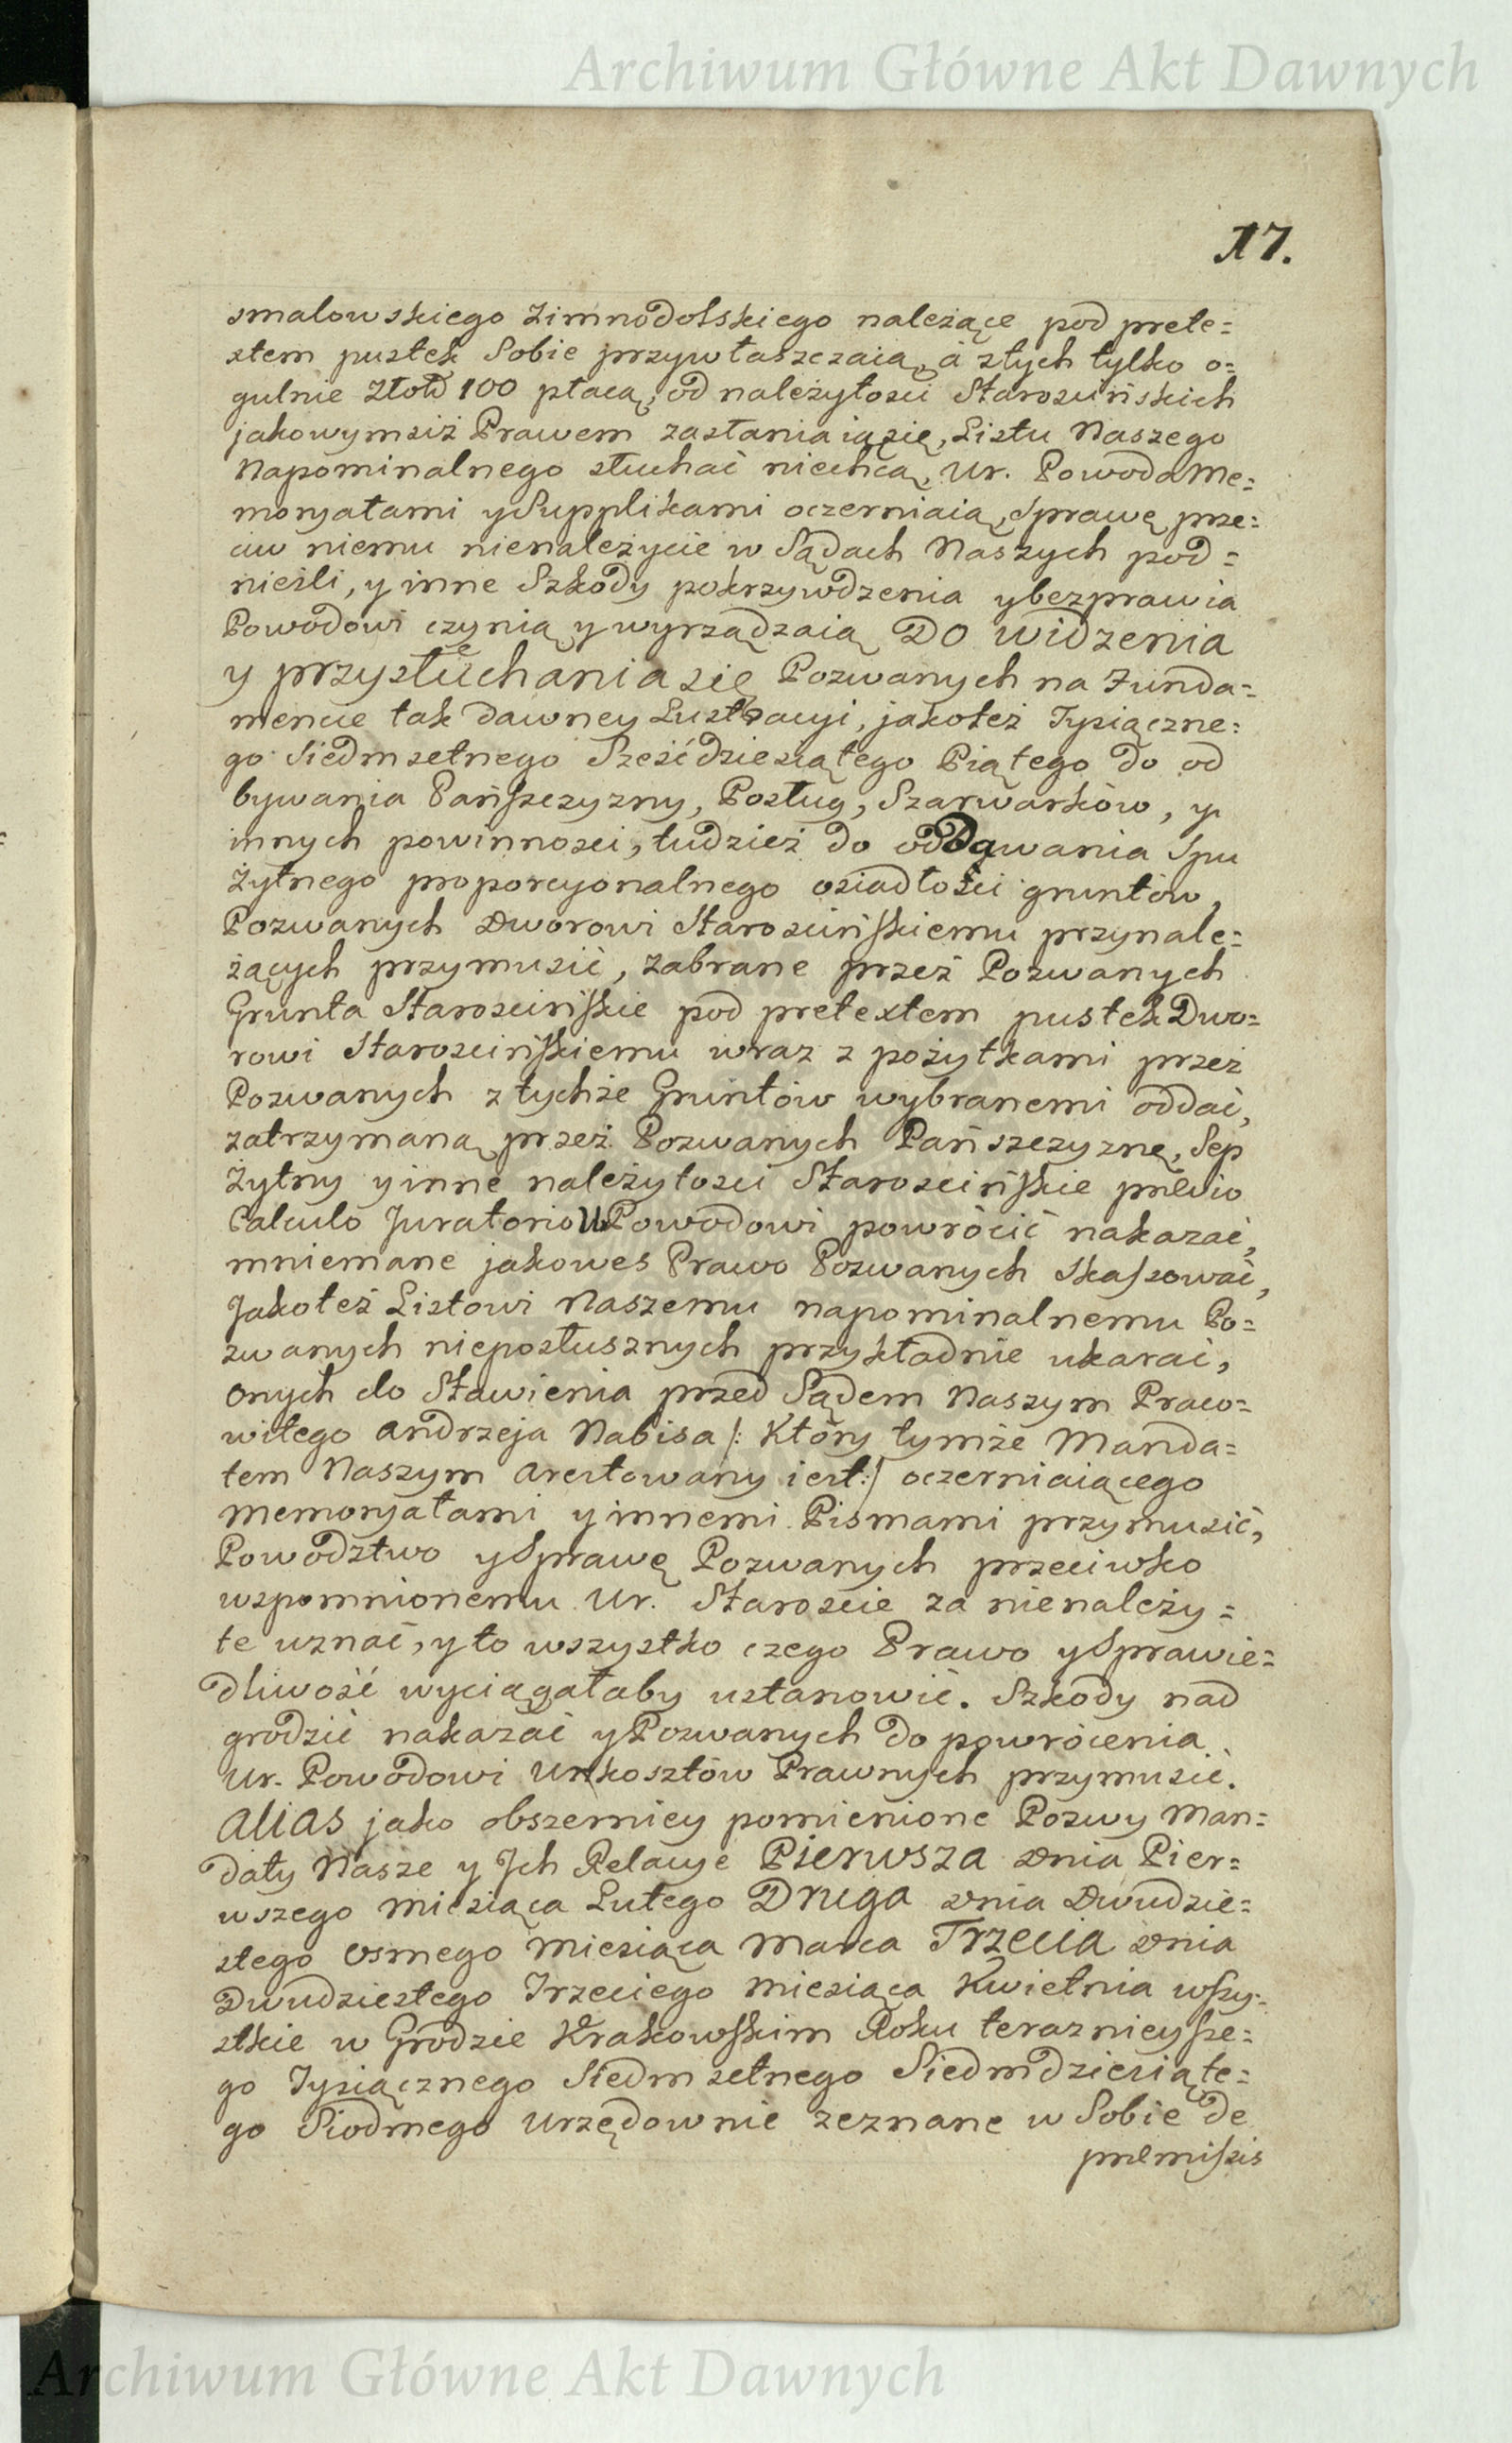 Archiwum Główne Akt Dawnych
17.
smalowskiego Zimnodolskiego należące pod prete=
stem pustek Sobie przywłaszczaią, à ztych tylko o=
gulnie Złott 100 płacą, od należytosci Staroscińskich
jakowymsiż Prawem zasłaniaią się, Listu Naszego
Napominalnego słuchać niechcą, Ur. Powoda Me=
moryałami y Supplikami oczerniaią, Sprawę prze=
ciw niemu nienależycie w Sądach Naszych pod=
nieśli, y inne Szkody pokrzywdzenia y bezprawia
Powodowi czynią y wyrządzaią Do widzenia
y przysłuchania się Pozwanych na Funda=
mencie tak dawney Lustracyi, jakoteż Tysiączne=
go Siedmsetnego Sześćdziesiątego Piątego do od
bywania Pańszczyzny, Posług, Szarwarków, y
innych powinnosci, tudzież do oddawania Spu
Żytnego proporcyonalnego osiadłości gruntów,
Pozwanych Dworowi Starościńskiemu przynale=
żących przymusić, zabrane przeż Pozwanych
Grunta Starościńskie pod pretextem pustek Dwo=
rowi Starościńskiemu wraz z pożytkami przeż
Pozwanych z tychże Gruntów wybranemi oddać,
zatrzymaną przeż Pozwanych Pańszczyznę, Sep
Żytny y inne należytosci Starościńskie prævio
Calculo Juratorio Ur Powodowi powrócić nakazać,
mniemane jakowes Prawo Pozwanych skassować,
Jakoteż Listowi Naszemu napominalnemu Po=
zwanych nieposłusznych przykładnie ukarać,
onych do Stawienia przed Sądem Naszym Praco=
witego Andrzeja Nabisa /: Który tymże Manda=
tem Naszym Arestowany iest :/ oczerniaiącego
Memoryałami y innemi Pismami przymusić,
Powodztwo y Sprawę Pozwanych przeciwko
wspomnionemu Ur. Staroscie za nienależy=
te uznać, y to wszystko czego Prawo y Sprawie=
dliwość wyciągałaby ustanowić. Szkody nad
grodzić nakazać y Pozwanych do powrócenia
Ur. Powodowi Urkosztów Prawnych przymusić.
Alias jako obszerniey pomienione Pozwy Man=
daty Nasze y Jch Relacye Pierwsza Dnia Pier=
wszego Miesiąca Lutego Druga Dnia Dwudzie=
stego Osmego Miesiąca Marca Trzecia Dnia
Dwudziestego Trzeciego Miesiąca Kwietnia wszy=
stkie w Grodzie Krakowskim Roku teraznieysze=
go Tysiącznego Siedmsetnego Siedmdziesiąte=
go Siodmego Urzędownie zeznane w Sobie de
præmissis
Archiwum Główne Akt Dawnych